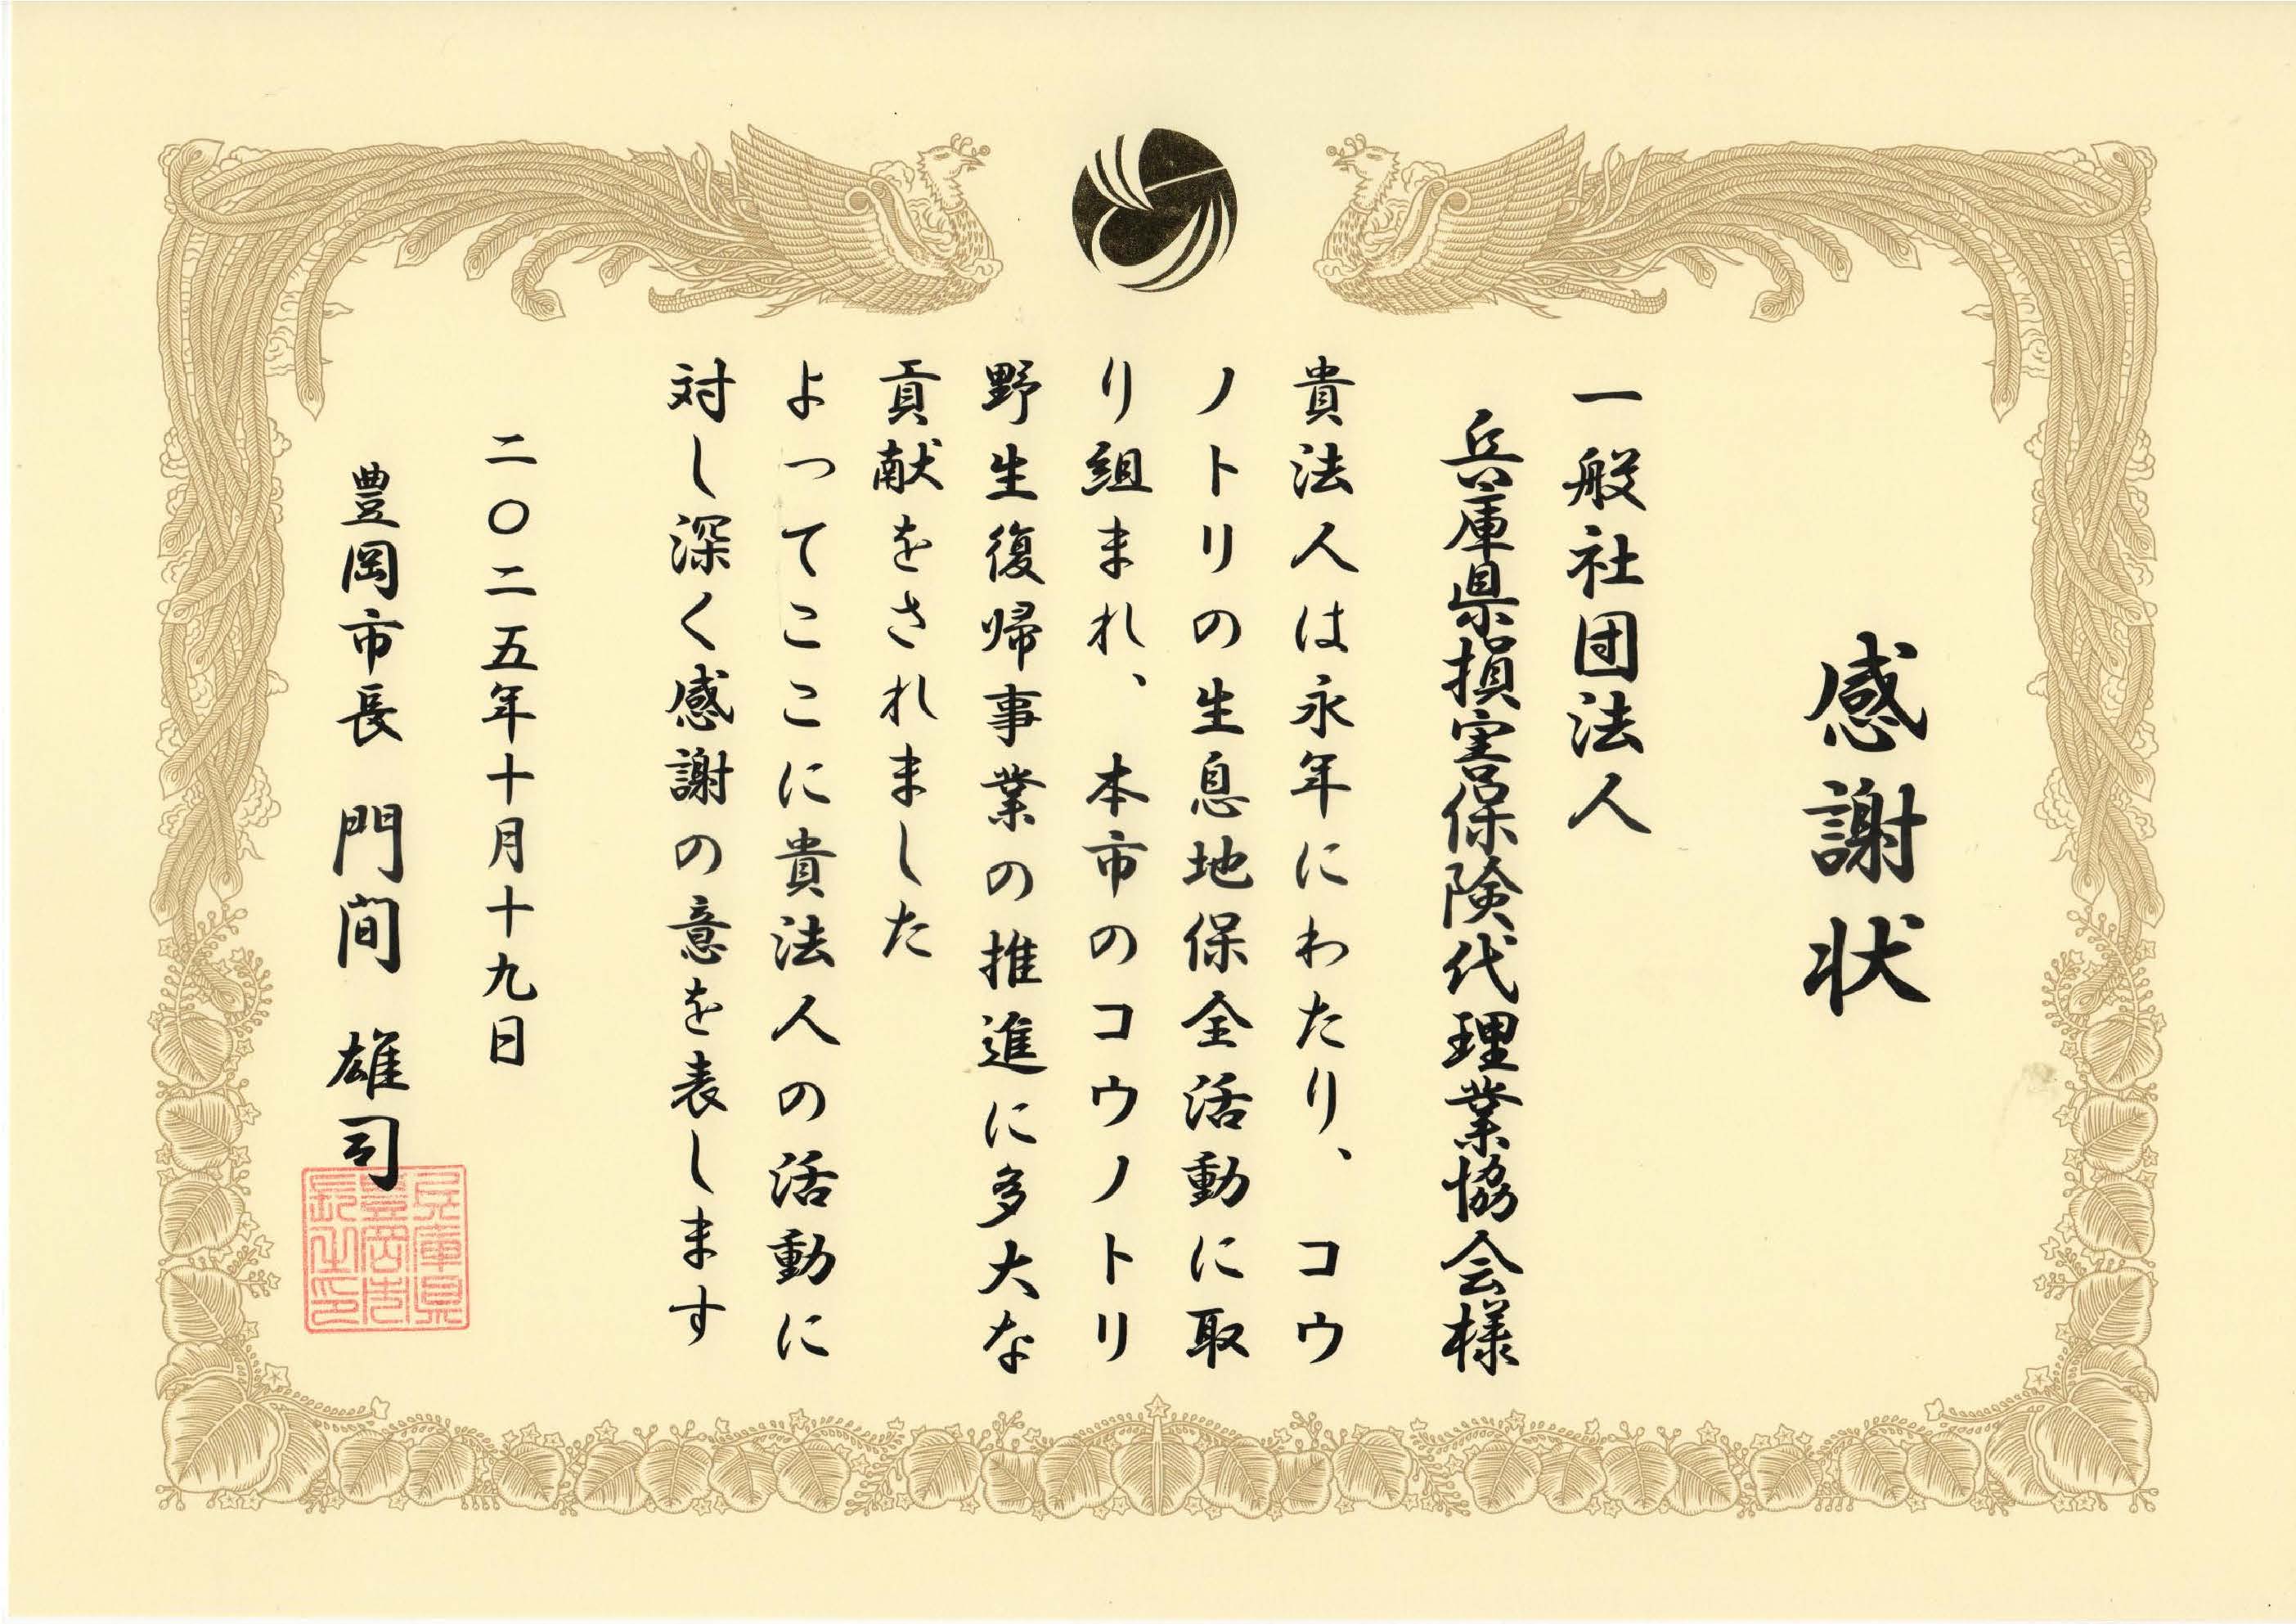 感謝状
一般社団法人
兵庫県損害保険代理業協会様
貴法人は永年にわたり、コウ
ノトリの生息地保全活動に取
り組まれ、本市のコウノトリ
野生復帰事業の推進に多大な
貢献をされました
よってここに貴法人の活動に
対し深く感謝の意を表します
二〇二五年十月十九日
豊岡市長 門間 雄司
兵庫県
豊岡市
長之印